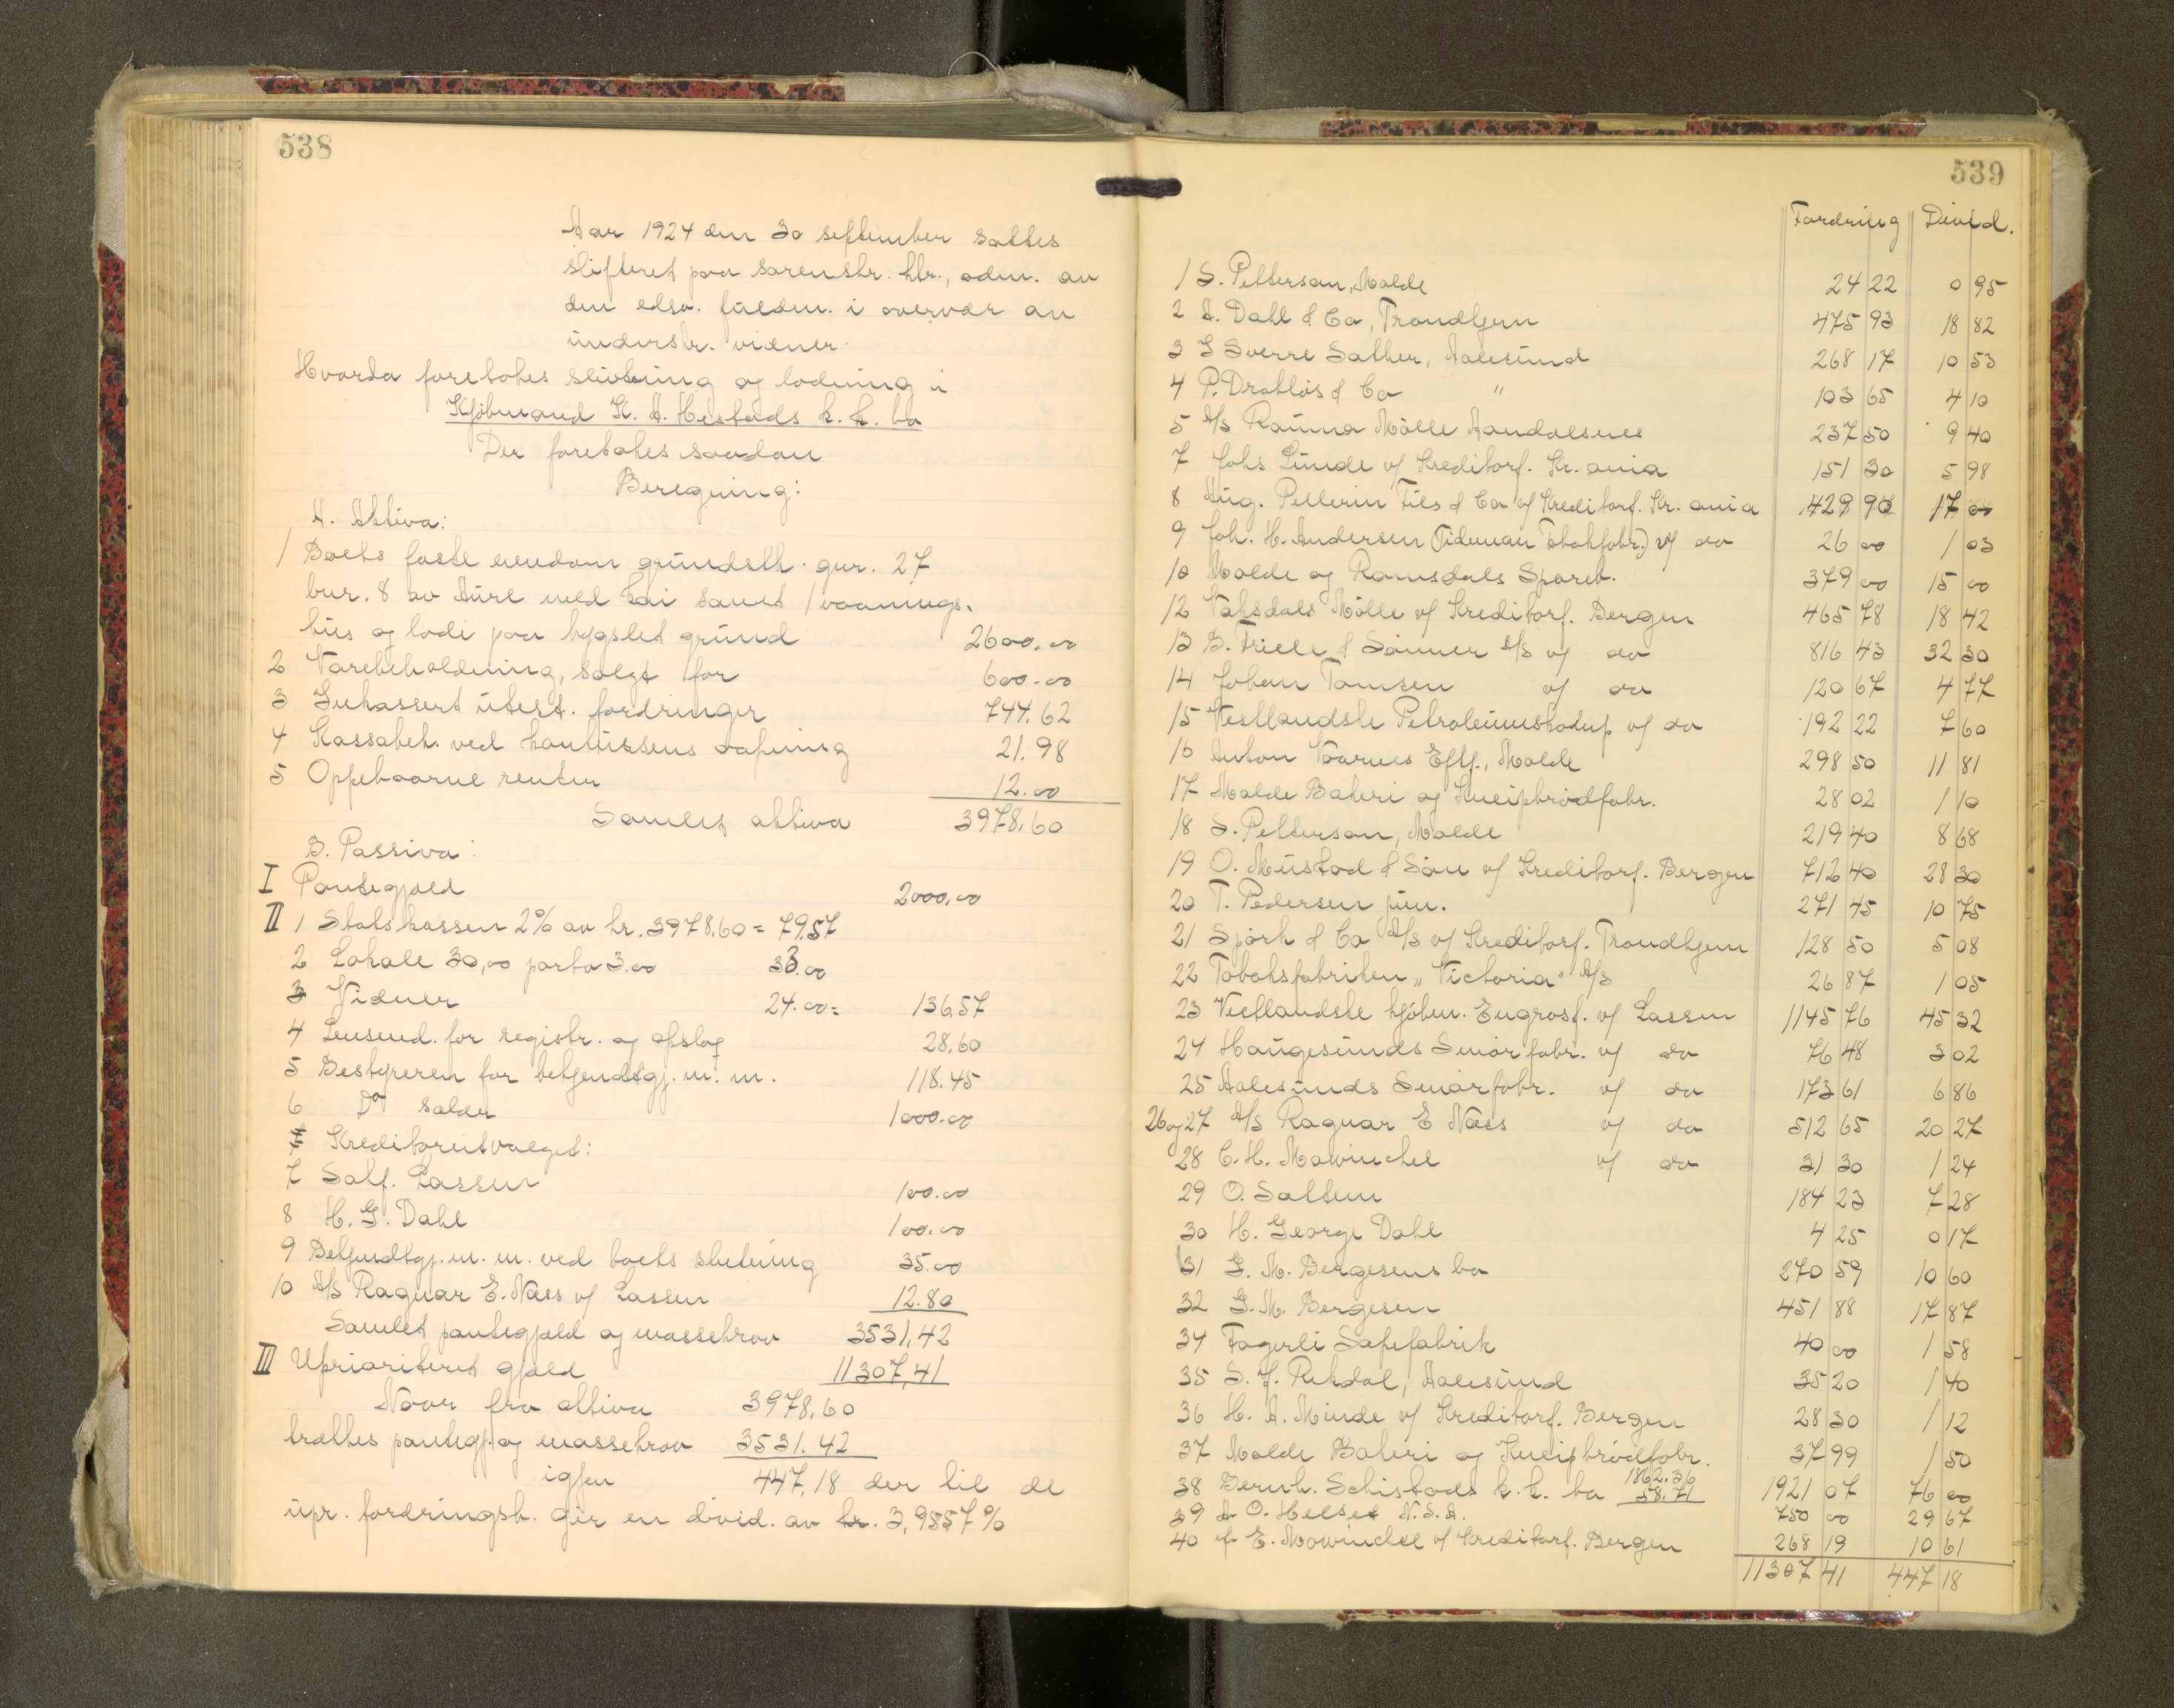 538
Aar 1924 den 30 september sattes
skifteret paa sorenskr. ktr., adm. av
den edsv. fuldm. i overvær av
underskr. vidner.
Hvorda foretokes slutning og lodning i
Kjøbmand K. A. Hestads k. k. bo
Der foretokes saadan
Beregning:
A. Aktiva:
1 Boets faste eiendom grundstk. gnr. 27
bnr. 8 av Aure med kai samt 1 vaanings-
hus og lade paa bygslet grund 2600.00
2 Varebeholdning, solgt for 600.00
3 Inkassert utest. fordringer 744.62
4 Kassabeh. ved konkursens aapning 21.98
5 Oppebaarne renter 12.00
Samlet aktiva 3978,60
B. Passiva:
I Pantegjæld 2000,00
II 1 Statskassen 2% av kr. 3978,60 = 79.57
2 Lokale 30,00 porto 3.00 33.00
3 Vidner 24.00 = 136,57
4 Lensmd. for registr. og opslag 28,60
5 Bestyreren for bekjendtgj. m. m. 118.45
6 Do salær 1000.00
7 Kreditorutvalget:
7 Salf. Lassen 100.00
8 H. G. Dahl 100.00
9 Bekjendtgj. m. m. ved boets slutning 35.00
10 A/S Ragnar E. Næss v/ Lassen 12.80
Samlet pantegjæld og massekrav 3531,42
III Uprioritert gjæld 11307,41
Naar fra aktiva 3978,60
trækkes pantegj. og massekrav 3531.42
igjen 447,18 der til de
upr. fordringsh. gir en divid. av kr. 3,9557 %
539
Fordring Divid.
1 S. Petterson, Molde 24 22 0 95
2 A. Dahl & Co, Trondhjem 475 93 18 82
3 I Sverre Sather, Aalesund 268 17 10 53
4 P. Drabløs & Co " 103 65 4 10
5 A/S Rauma Mølle Aandalsnes 237 50 9 40
7 Johs Lunde v/ Kreditorf. Kr.ania 151 30 5 98
8 Aug. Pellerin Fils & Co v/ Kreditorf. Kr. ania 429 90 17 00
9 Joh. H. Andersen (Tideman Tobakfabr.) v/ do 26 00 1 03
10 Molde og Romsdals Spareb. 379 00 15 00
12 Vaksdals Mølle v/ Kreditorf. Bergen 465 78 18 42
13 B. Friele & Sønner A/S v/ do 816 43 32 30
14 Johan Tomsen v/ do 120 67 4 77
15 Vestlandske Petroleumskomp v/ do 192 22 7 60
16 Anton Vaarnes Eftf., Molde 298 50 11 81
17 Molde Bakeri og Kneipbrødfabr. 28 02 1 10
18 S. Petterson, Molde 219 40 8 68
19 O. Mustad & Søn v/ Kreditorf. Bergen 712 40 28 30
20 T. Pedersen jun. 271 45 10 75
21 Spørk & Co A/S v/ Kreditorf. Trondhjem 128 50 5 08
22 Tobaksfabriken „Victoria" A/S 26 87 1 05
23 Vestlandske kjøbm. Engrosf. v/ Lassen 1145 76 45 32
24 Haugesunds Smørfabr. v/ do 76 48 3 02
25 Aalesunds Smørfabr. v/ do 173 61 6 86
26 og 27 A/S Ragnar E Næss v/ do 512 65 20 27
28 C. H. Mowinckel v/ do 31 30 1 24
29 O. Saltem 184 23 7 28
30 H. George Dahl 4 25 0 17
31 G. M. Bergesens bo 270 59 10 60
32 G. M. Bergesen 451 88 17 87
34 Fagerli Sæpefabrik 40 00 1 58
35 S. J. Rekdal, Aalesund 35 20 1 40
36 H. A. Minde v/ Kreditorf. Bergen 28 30 1 12
37 Molde Bakeri og Kneipbrødfabr. 37 99 1 50
38 Bernh. Schistads k. k. bo 1862.36 58.71 1921 07 76 00
39 A O. Helset N.S.A. 750 00 29 67
40 E. Mowinckel v/ Kreditorf. Bergen 268 19 10 61
11307 41 447 18